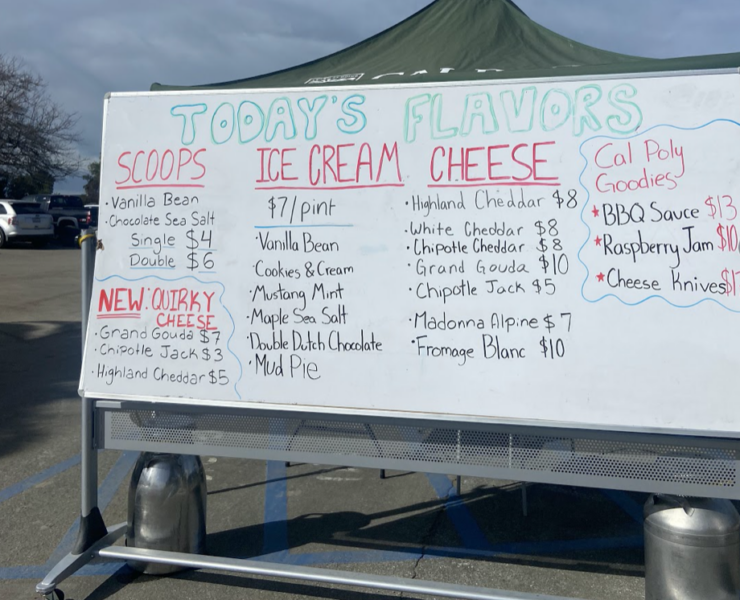 TODAY'S FLAVORS
SCOOPS
• Vanilla Bean
• Chocolate Sea Salt
Single $4
Double $6
NEW: QUIRKY
CHEESE
• Grand Gouda $7
• Chipotle Jack $3
• Highland Cheddar $5
ICE CREAM
$7/pint
• Vanilla Bean
• Cookies & Cream
• Mustang Mint
• Maple Sea Salt
• Double Dutch Chocolate
• Mud Pie
CHEESE
• Highland Cheddar $8
• White Cheddar $8
• Chipotle Cheddar $8
• Grand Gouda $10
• Chipotle Jack $5
• Madonna Alpine $7
• Fromage Blanc $10
Cal Poly
Goodies
* BBQ Sauce $13
* Raspberry Jam $10
* Cheese Knives